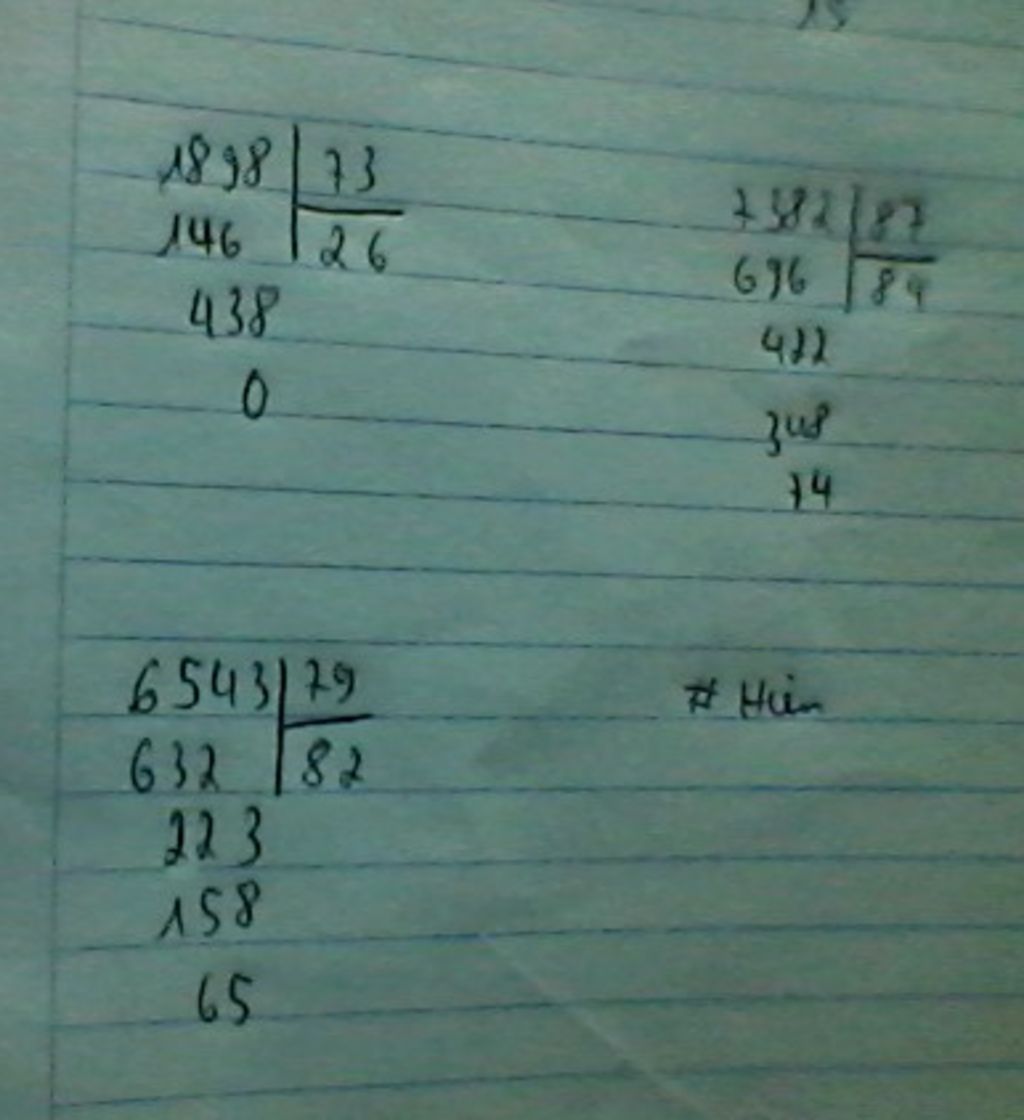 15
1898 | 73
146 | 26
438
0
7382 | 87
696 | 84
422
348
74
6543 | 79
632 | 82
223
158
65
# Hiền